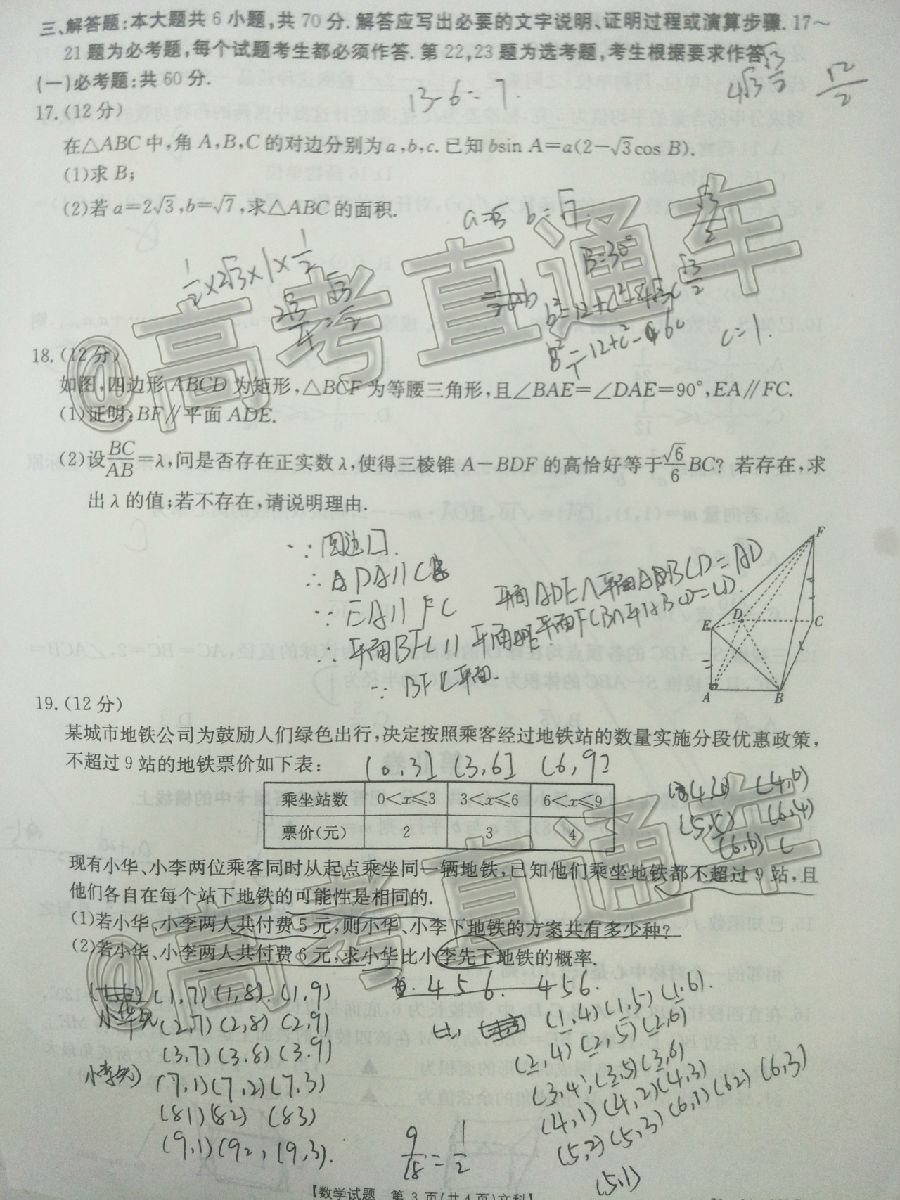 三、解答题:本大题共6小题,共70分.解答应写出必要的文字说明、证明过程或演算步骤.17～
21题为必考题,每个试题考生都必须作答.第22,23题为选考题,考生根据要求作答.
(一)必考题:共60分.
13-6=7
4√3 √3/2
12/2
17.(12分)
在△ABC中,角A,B,C的对边分别为a,b,c.已知bsin A=a(2-√3cos B).
(1)求B;
(2)若a=2√3,b=√7,求△ABC的面积.
b=√7
√3/2
B=30°
1/2×2√3×1×1/2
2√3/4=√3/2
c=1.
@高考直通车
18.(12分)
如图,四边形ABCD为矩形,△BCF为等腰三角形,且∠BAE=∠DAE=90°,EA∥FC.
(1)证明:BF∥平面ADE.
(2)设BC/AB=λ,问是否存在正实数λ,使得三棱锥A-BDF的高恰好等于√6/6 BC? 若存在,求
出λ的值;若不存在,请说明理由.
∵EA∥FC
F
E
D
C
A
B
19.(12分)
某城市地铁公司为鼓励人们绿色出行,决定按照乘客经过地铁站的数量实施分段优惠政策,
不超过9站的地铁票价如下表:
(0,3] (3,6] (6,9]
乘坐站数 0<x≤3 3<x≤6 6<x≤9
票价(元) 2 3 4
现有小华、小李两位乘客同时从起点乘坐同一辆地铁,已知他们乘坐地铁都不超过9站,且
他们各自在每个站下地铁的可能性是相同的.
(1)若小华、小李两人共付费5元,则小华、小李下地铁的方案共有多少种?
(2)若小华、小李两人共付费6元,求小华比小李先下地铁的概率.
@高考直通车
(1,7)(1,8).(1,9)
小华先
(2,7)(2,8)(2,9)
(3,7)(3,8)(3,9)
小李先
(7,1)(7,2)(7,3)
(81)(82)(83)
(9,1)(92,(9,3).
4 5 6. 4 5 6.
(1,4)(1,5)(1,6)
(2,4)(2,5)(2,6)
(3,4)(3,5)(3,6)
(4,1)(4,2)(4,3)
(5,2)(5,3)(6,1)(62)(6,3)
(5,1)
9/18=1/2
【数学试题 第3页(共4页)文科】